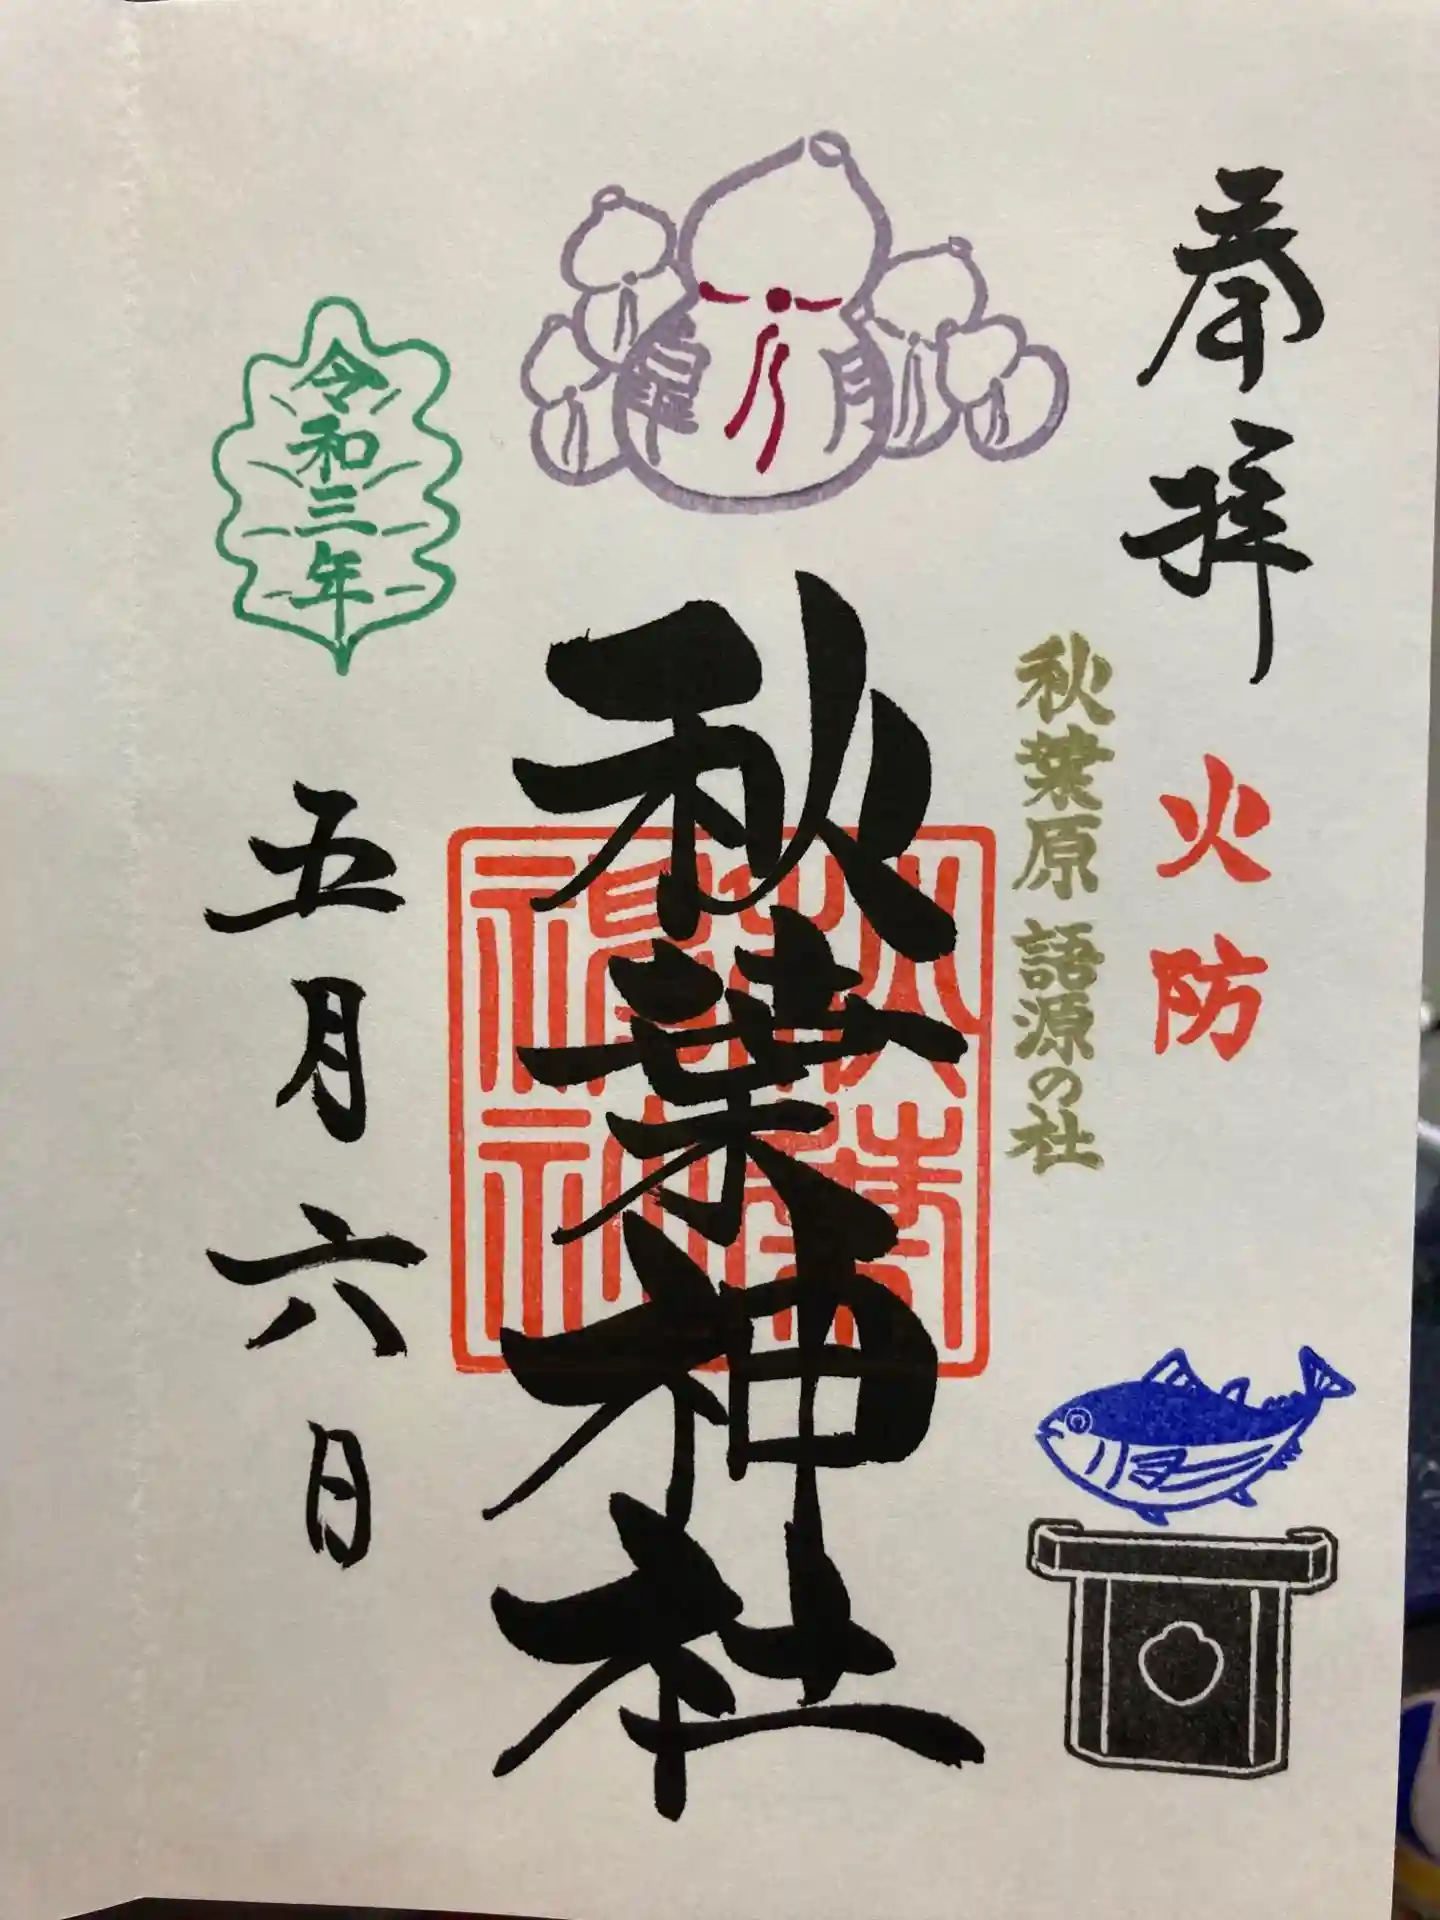 奉拝
火防
秋葉原 語源の社
皐月
秋葉神社
秋葉
神社
令和三年
五月六日